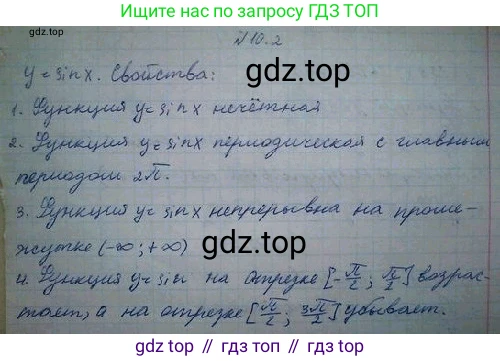 Ищите нас по запросу ГДЗ ТОП
№10.2
gdz.top
y = sin x. Свойства:
gdz.top
1. Функция y = sin x нечётная
2. Функция y = sin x периодическая с главным
периодом 2π.
gdz.top
3. Функция y = sin x непрерывна на проме-
жутке (-∞; +∞)
4. Функция y = sin на отрезке [-π/2; π/2] возрас-
тает, а на отрезке [π/2; 3π/2] убывает.
gdz top // гдз топ // gdz top